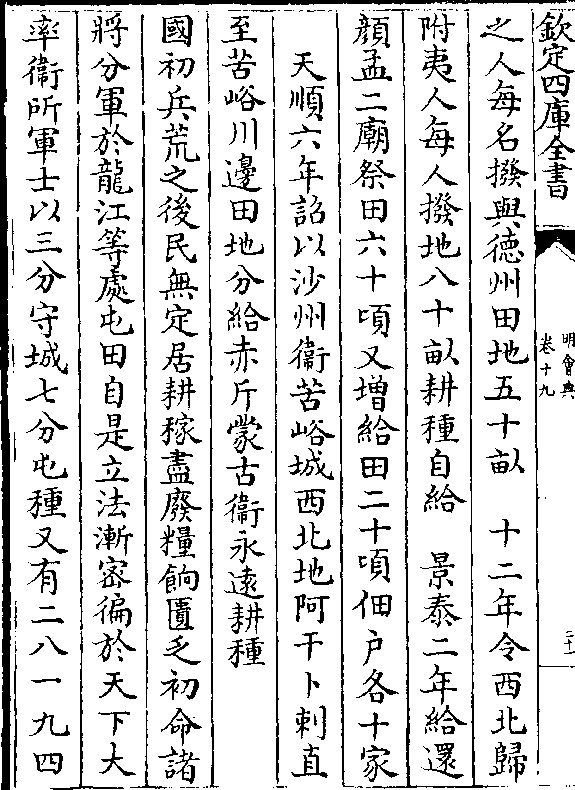 欽定四庫全書
明會典
卷十九
二十
之人每名撥與德州田地五十畝　十二年令西北歸
附夷人每人撥地八十畝耕種自給　景泰二年給還
顔孟二廟祭田六十頃又增給田二十頃佃戶各十家
天順六年詔以沙州衞苦峪城西北地阿干卜剌直
至苦峪川邊田地分給赤斤蒙古衞永遠耕種
國初兵荒之後民無定居耕稼盡廢糧餉匱乏初命諸
將分軍於龍江等處屯田自是立法漸密徧於天下大
率衞所軍士以三分守城七分屯種又有二八一九四